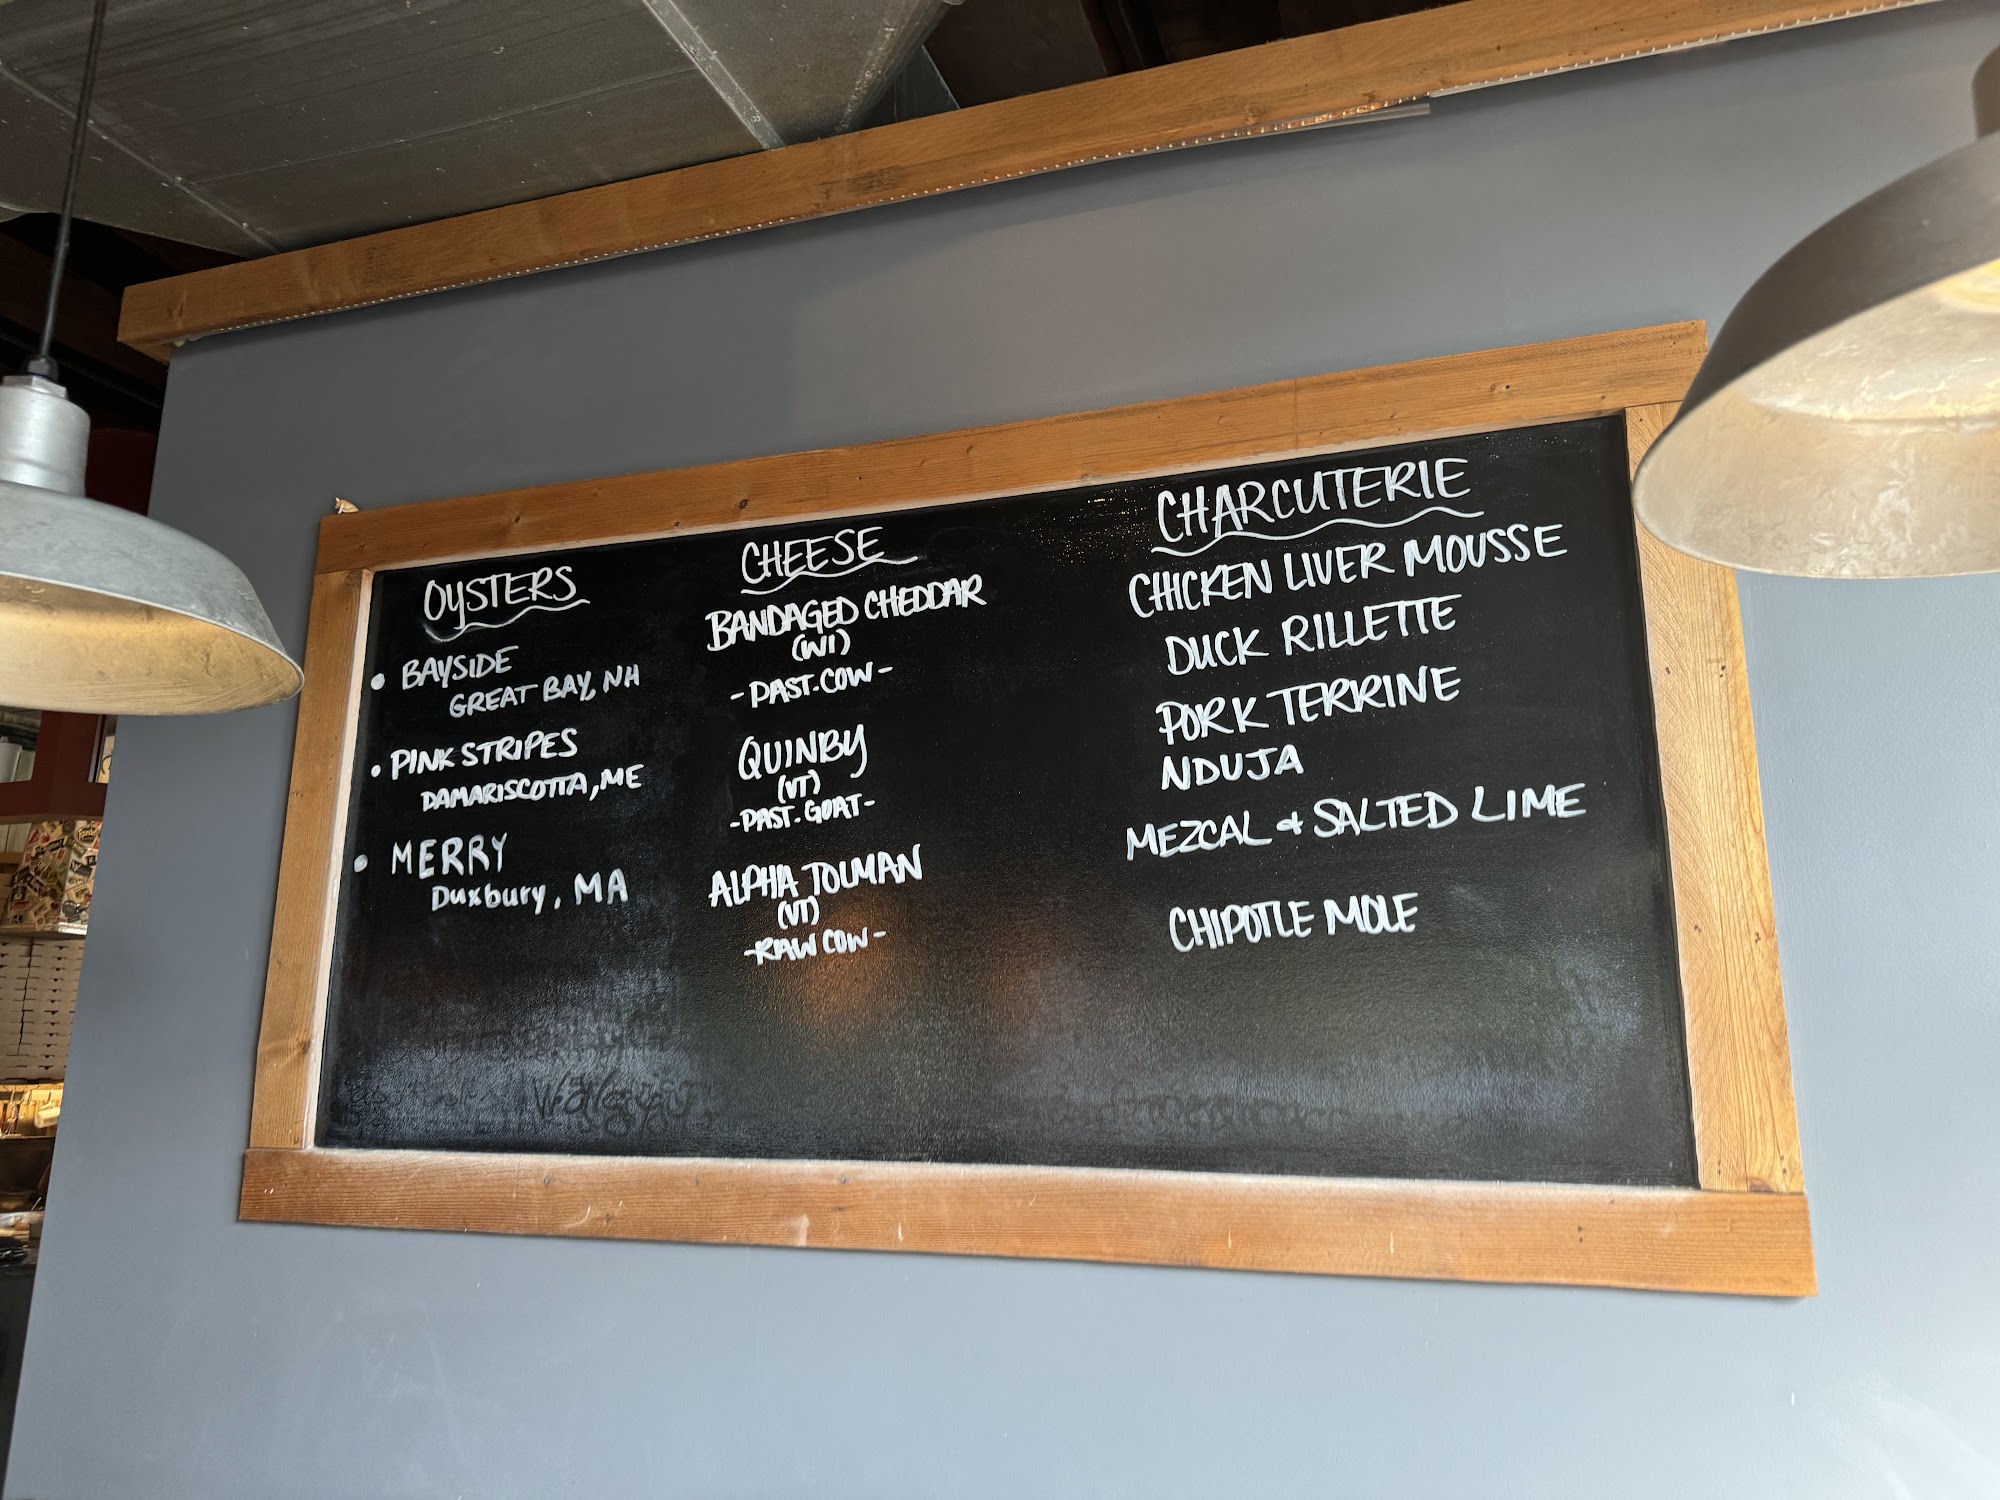 OYSTERS
• BAYSIDE
GREAT BAY, NH
• PINK STRIPES
DAMARISCOTTA, ME
• MERRY
Duxbury, MA
CHEESE
BANDAGED CHEDDAR
(WI)
- PAST. COW -
QUINBY
(VT)
- PAST. GOAT -
ALPHA TOLMAN
(VT)
- RAW COW -
CHARCUTERIE
CHICKEN LIVER MOUSSE
DUCK RILLETTE
PORK TERRINE
NDUJA
MEZCAL & SALTED LIME
CHIPOTLE MOLE